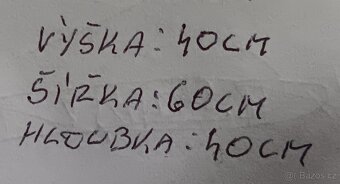 VÝŠKA: 40CM
ŠÍŘKA: 60CM
HLOUBKA: 40CM
© Bazos.cz